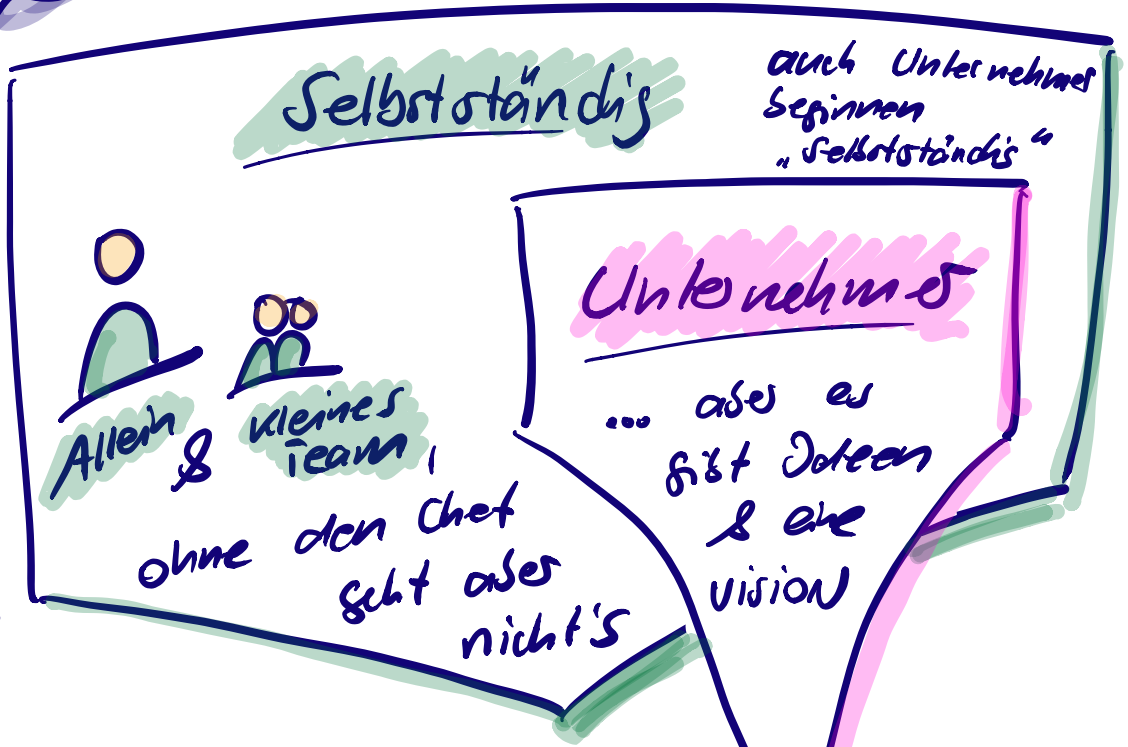 Selbstständig
auch Unternehmer
beginnen
„Selbstständig"
Unternehmer
Allein & kleines
Team,
ohne den Chef
geht aber
nicht's
... aber es
gibt Ideen
& eine
Vision